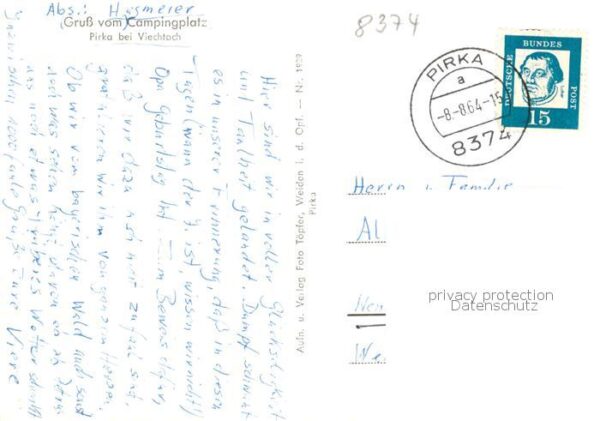 Abs.: Hagmeier
Gruß vom Campingplatz
Pirka bei Viechtach
Hier sind wir in voller Glückseligkeit
und Faulheit gelandet. Dumpf schwebt
es in unserer Erinnerung, daß in diesen
Tagen (wann der 9. ist, wissen wir nicht!)
Opa Geburtstag hat. Zum Beweis dafür,
daß wir dazu noch nicht zu faul sind,
gratulieren wir ihm von ganzem Herzen.
Ob wir vom bayerischen Wald mal sonst
etwas sehen hängt davon ab ob Petrus
uns noch etwas
Wetter schafft
Inzwischen
Grüße Eure Viere
Aufn. u. Verlag Foto Töpfer, Weiden i. d. Opf. — Nr. 1939
Pirka
8374
PIRKA
a
-8-8.64-15
8374
DEUTSCHE BUNDESPOST
15
Herrn u. Familie
Al
We
privacy protection
Datenschutz